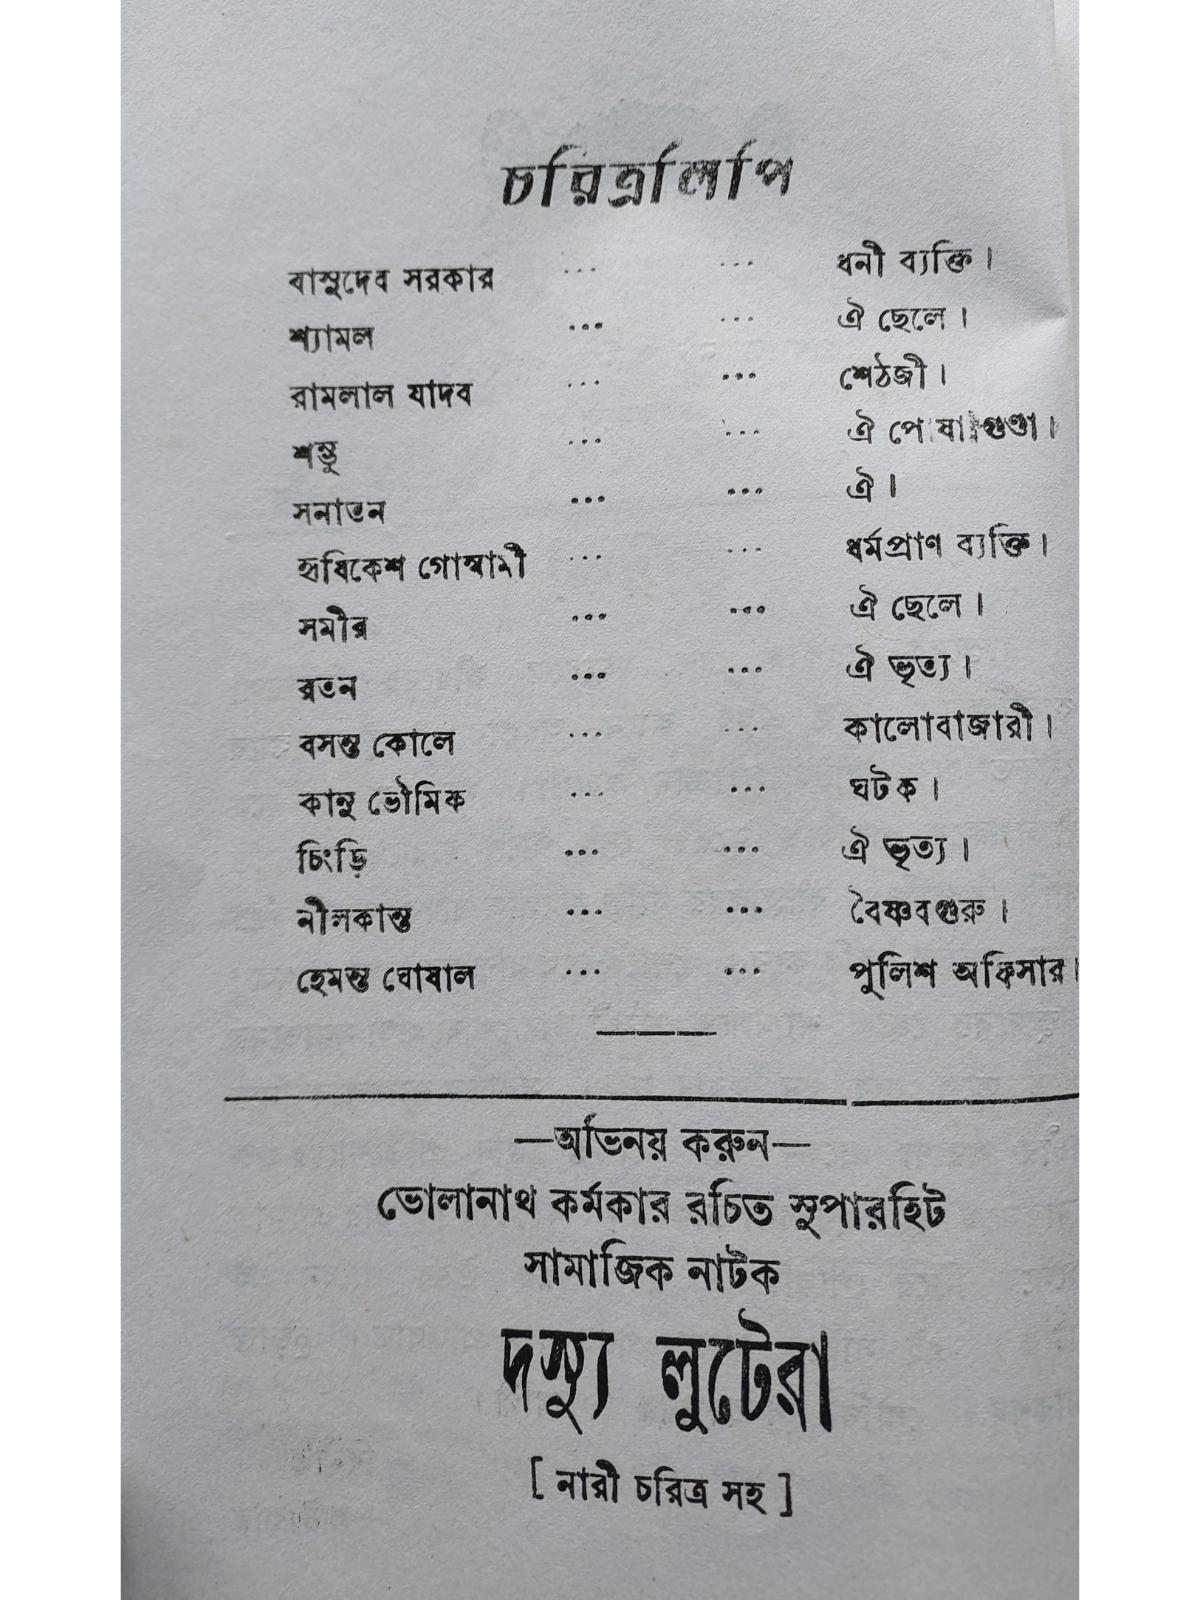 চরিত্রলিপি
বাসুদেব সরকার ... ... ধনী ব্যক্তি।
শ্যামল ... ... ঐ ছেলে।
রামলাল যাদব ... ... শেঠজী।
শম্ভু ... ... ঐ পোষা গুণ্ডা।
সনাতন ... ... ঐ।
হৃষিকেশ গোস্বামী ... ... ধর্মপ্রাণ ব্যক্তি।
সমীর ... ... ঐ ছেলে।
রতন ... ... ঐ ভৃত্য।
বসন্ত কোলে ... ... কালোবাজারী।
কানু ভৌমিক ... ... ঘটক।
চিংড়ি ... ... ঐ ভৃত্য।
নীলকান্ত ... ... বৈষ্ণবগুরু।
হেমন্ত ঘোষাল ... ... পুলিশ অফিসার।
—অভিনয় করুন—
ভোলানাথ কর্মকার রচিত সুপারহিট
সামাজিক নাটক
দস্যু লুটেরা
[ নারী চরিত্র সহ ]